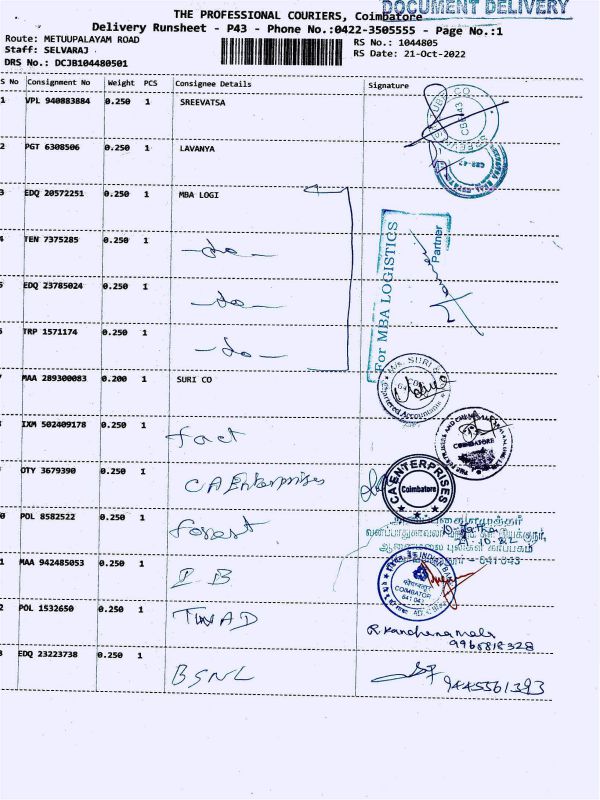 DOCUMENT DELIVERY
THE PROFESSIONAL COURIERS, Coimbatore
Delivery Runsheet - P43 - Phone No.:0422-3505555 - Page No.:1
Route: METUUPALAYAM ROAD
RS No.: 1044805
Staff: SELVARAJ
RS Date: 21-Oct-2022
DRS No.: DCJB104480501
S No Consignment No Weight PCS Consignee Details Signature
1 VPL 940883884 0.250 1 SREEVATSA
2 PGT 6308506 0.250 1 LAVANYA
3 EDQ 20572251 0.250 1 MBA LOGI
TEN 7375285 0.250 1 -do-
EDQ 23785024 0.250 1 -do-
TRP 1571174 0.250 1 -do-
For MBA LOGISTICS
Partner
MAA 289300083 0.200 1 SURI CO
M/s. SURI &
Chartered Accountants
IXM 502409178 0.250 1 fact
COIMBATORE
OTY 3679390 0.250 1 CA Enterprises
CA ENTERPRISES
Coimbatore
0 POL 8582522 0.250 1 forest
வனப்பாதுகாவலர்
ஆனைமலை புலிகள் காப்பகம்
641 043
1 MAA 942485053 0.250 1 I B
INDIAN BANK
COIMBATOR
641 043
2 POL 1532650 0.250 1 TWAD
R. Kanchenamala
9965818328
EDQ 23223738 0.250 1 BSNL
9445561393